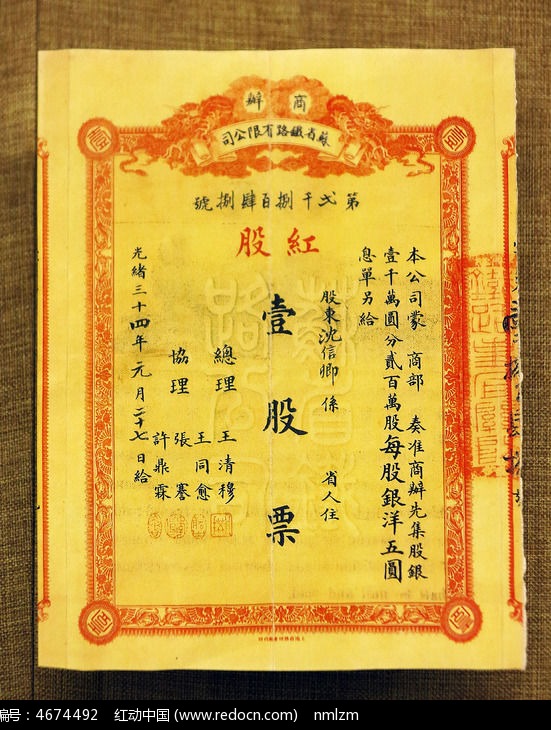 商辦
蘇省鐵路有限公司
第弍千捌百肆捌號
紅股
本公司蒙 商部 奏准商辦先集股銀
壹千萬圓分貳百萬股每股銀洋五圓
息單另給
股東沈信卿係 省人住
壹股票
總理 王清穆
王同愈
協理 張謇
許鼎霖
光緒三十四年元月二十七日給
编号：4674492 红动中国 (www.redocn.com) nmlzm